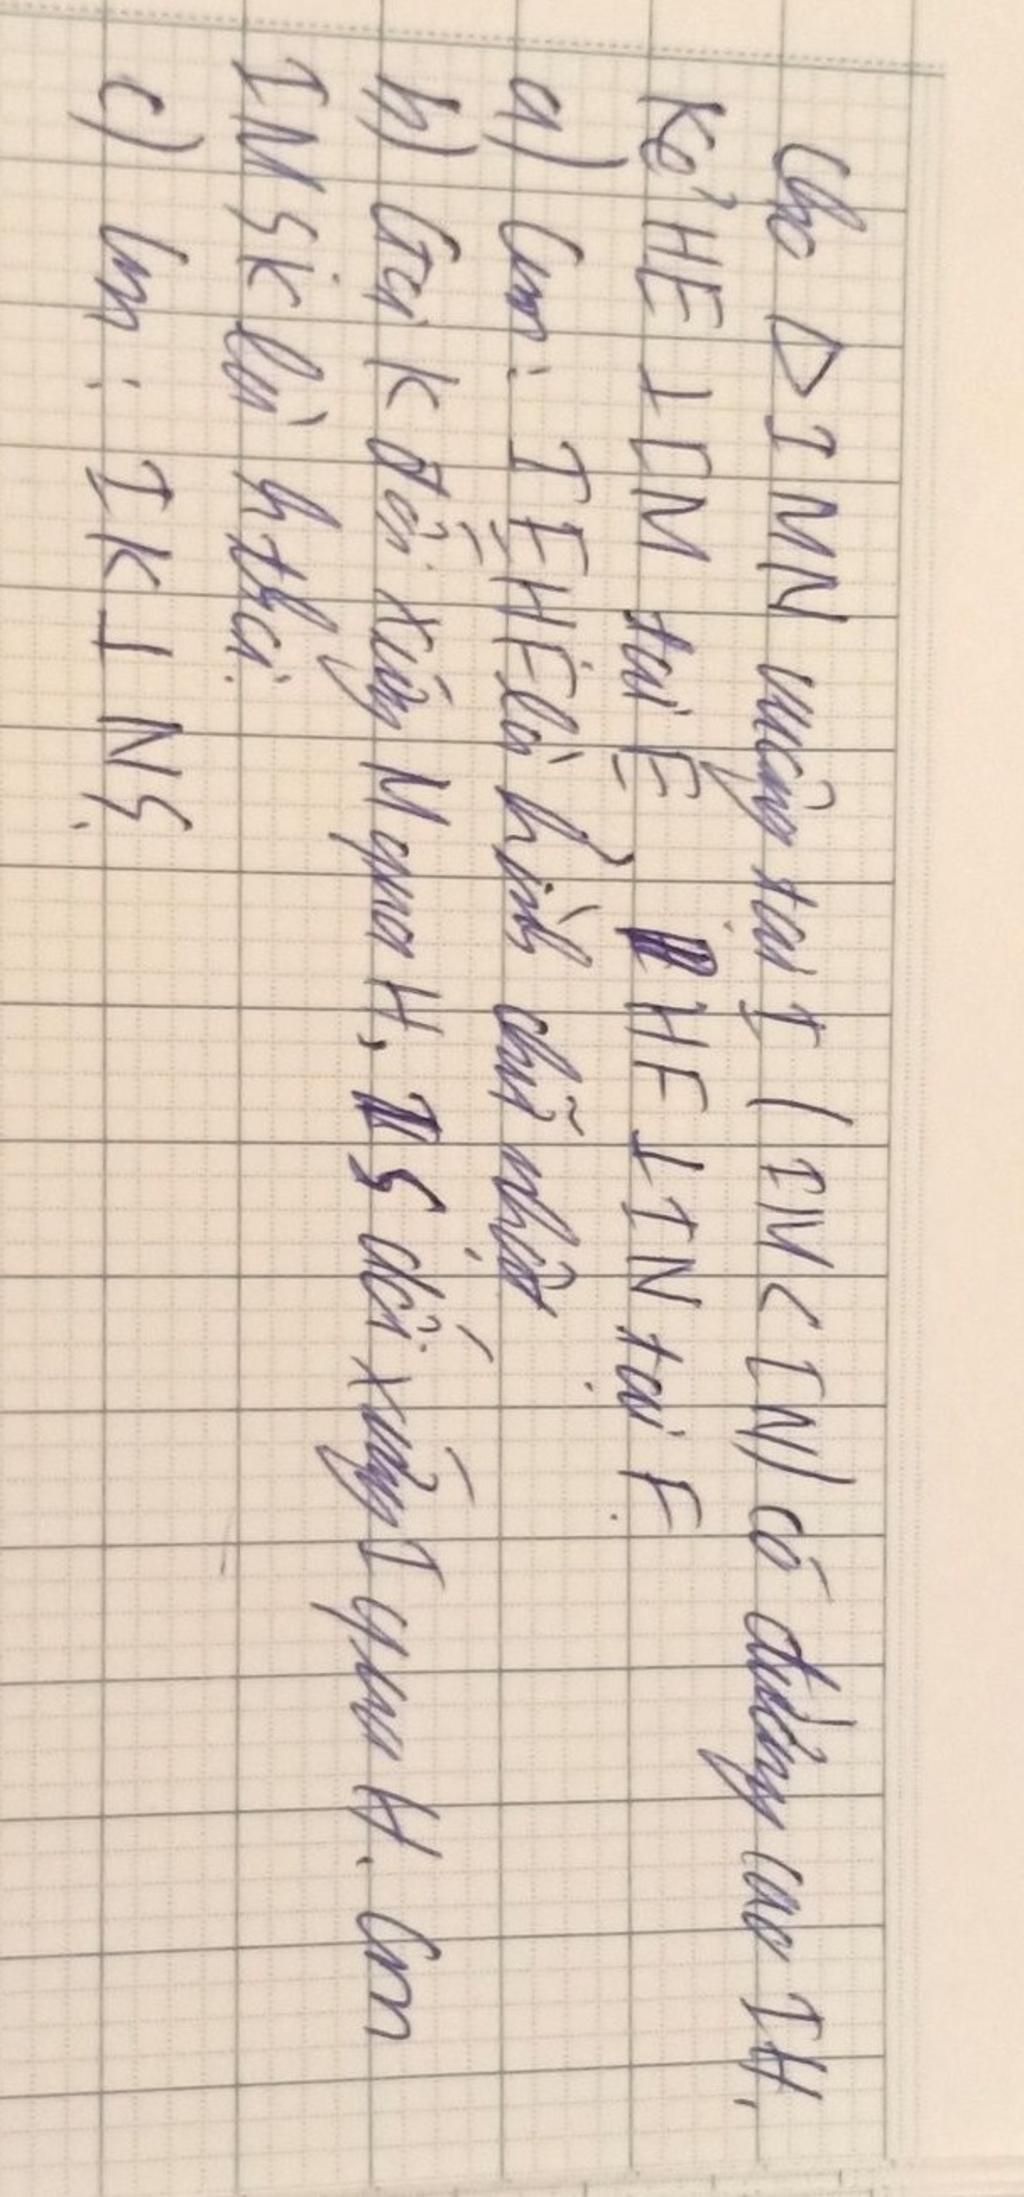 Cho △IMN vuông tại I (IM < IN) có đường cao IH.
Kẻ HE ⊥ IM tại E, HF ⊥ IN tại F
a) Cm: IEHF là hình chữ nhật
b) Gọi K đối xứng M qua H, S đối xứng I qua H. Cm
IMSK là hthoi
c) Cm: IK ⊥ NS